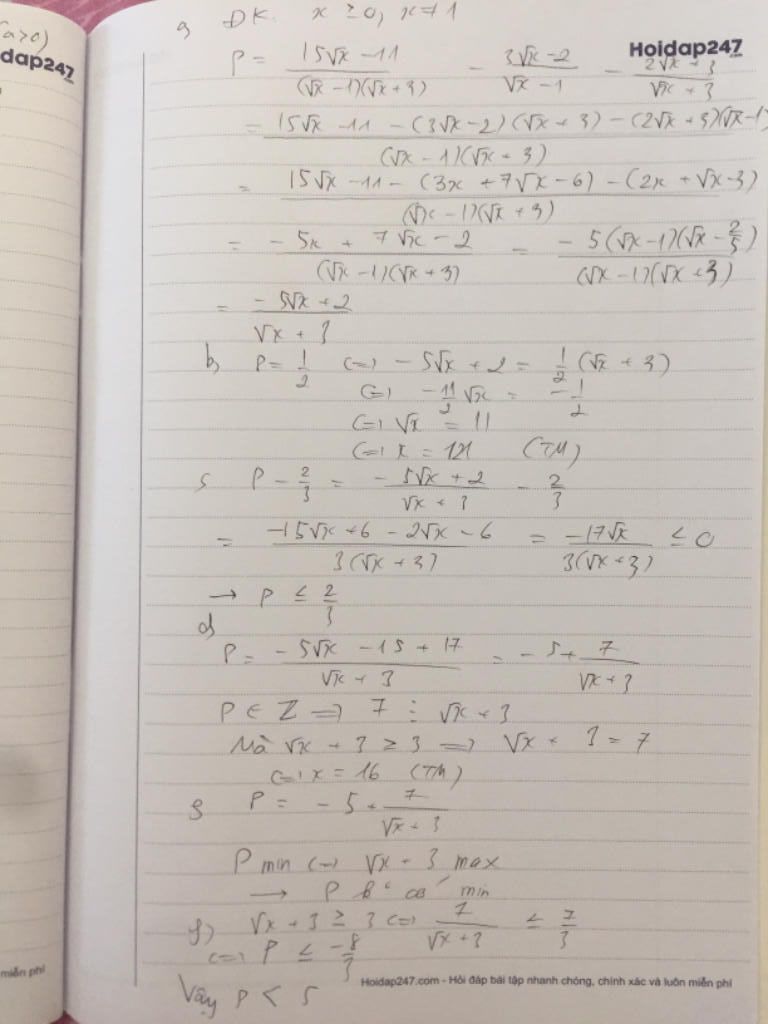 (a>0)
dap247
a, ĐK. x ≥ 0, x ≠ 1
Hoidap247
P = (15√x - 11)/((√x - 1)(√x + 3)) - (3√x - 2)/(√x - 1) - (2√x + 3)/(√x + 3)
= (15√x - 11 - (3√x - 2)(√x + 3) - (2√x + 3)(√x - 1))/((√x - 1)(√x + 3))
= (15√x - 11 - (3x + 7√x - 6) - (2x + √x - 3))/((√x - 1)(√x + 3))
= (-5x + 7√x - 2)/((√x - 1)(√x + 3)) = (-5(√x - 1)(√x - 2/5))/((√x - 1)(√x + 3))
= (-5√x + 2)/(√x + 3)
b, P = 1/2 <=> -5√x + 2 = 1/2 (√x + 3)
<=> -11/2 √x = -1/2
<=> √x = 11
<=> x = 121 (TM)
c, P - 2/3 = (-5√x + 2)/(√x + 3) - 2/3
= (-15√x + 6 - 2√x - 6)/(3(√x + 3)) = (-17√x)/(3(√x + 3)) ≤ 0
→ P ≤ 2/3
d,
P = (-5√x - 15 + 17)/(√x + 3) = -5 + 7/(√x + 3)
P ∈ Z => 7 ⋮ √x + 3
Mà √x + 3 ≥ 3 => √x + 3 = 7
<=> x = 16 (TM)
e, P = -5 + 7/(√x + 3)
P min <=> √x + 3 max
→ P k° có min
f) √x + 3 ≥ 3 <=> 7/(√x + 3) ≤ 7/3
<=> P ≤ -8/3
Vậy P < 5
miễn phí
Hoidap247.com - Hỏi đáp bài tập nhanh chóng, chính xác và luôn miễn phí